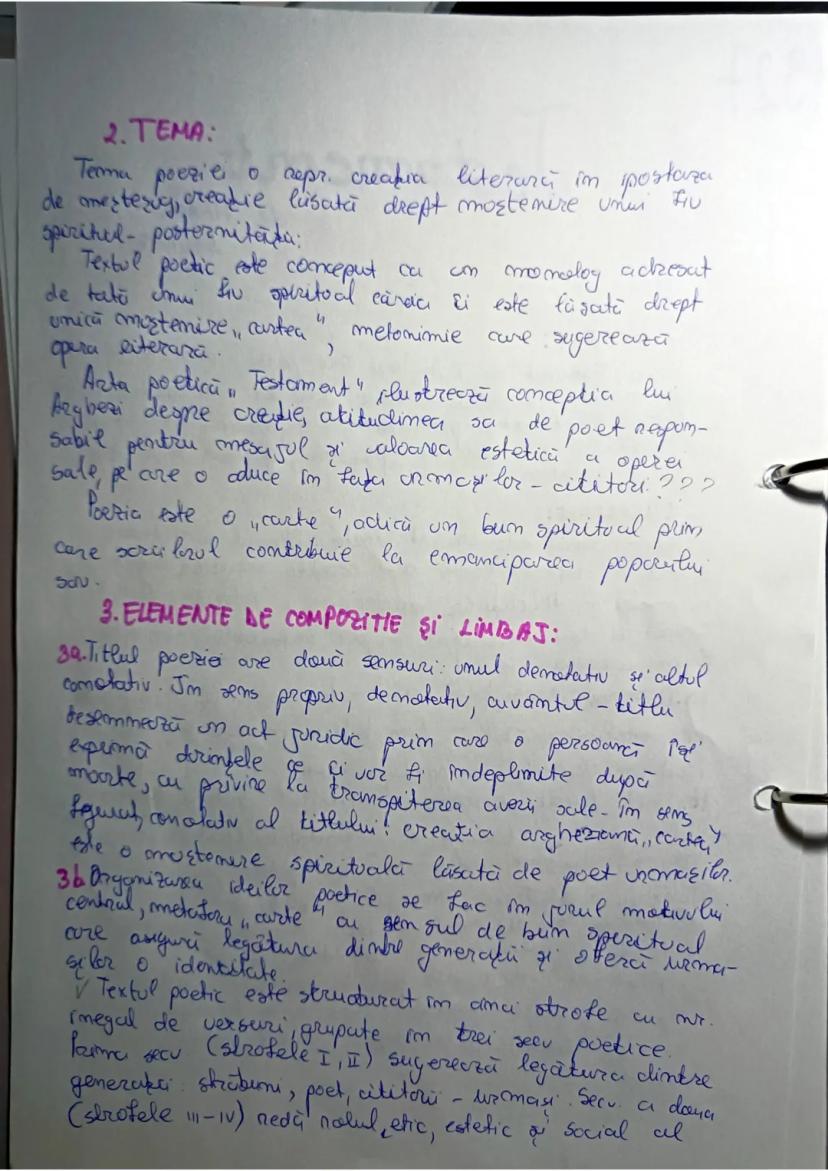 2. TEMA:
Tema poeziei o repr. creația literară în ipostaza
de meșteșug, creație lăsată drept moștenire unui fiu
spiritual - posternității;
Textul poetic este conceput ca un monolog adresat
de tată unui fiu spiritual căruia îi este lăsată drept
unică moștenire „cartea", metonimie care sugerează
opera literară.
Arta poetică „Testament" ilustrează concepția lui
Arghezi despre creație, atitudinea sa de poet respon-
sabil pentru mesajul și valoarea estetică a operei
sale, pe care o aduce în fața urmașilor - cititori???
Poezia este o „carte", adică un bun spiritual prin
care scriitorul contribuie la emanciparea poporului
său.
3. ELEMENTE DE COMPOZITIE ȘI LIMBAJ:
3a. Titlul poeziei are două sensuri: unul denotativ și altul
conotativ. În sens propriu, denotativ, cuvântul - titlu
desemnează un act juridic prin care o persoană își
exprimă dorințele ce îi vor fi îndeplinite după
moarte, cu privire la transpiterea averii sale. În sens
figurat, conotativ al titlului: creația argheziană, „cartea"
este o moștenire spirituală lăsată de poet urmașilor.
3b Organizarea ideilor poetice se fac în jurul motivului
central, metafora „carte" cu sensul de bun spiritual
care asigură legătura dintre generații și oferă urma-
șilor o identitate.
✓ Textul poetic este structurat în cinci strofe cu nr.
inegal de versuri, grupate în trei secv poetice.
Prima secv (strofele I, II) sugerează legătura dintre
generații: străbuni, poet, cititorii - urmași. Secv. a doua
(strofele III-IV) redă rolul, etic, estetic și social al